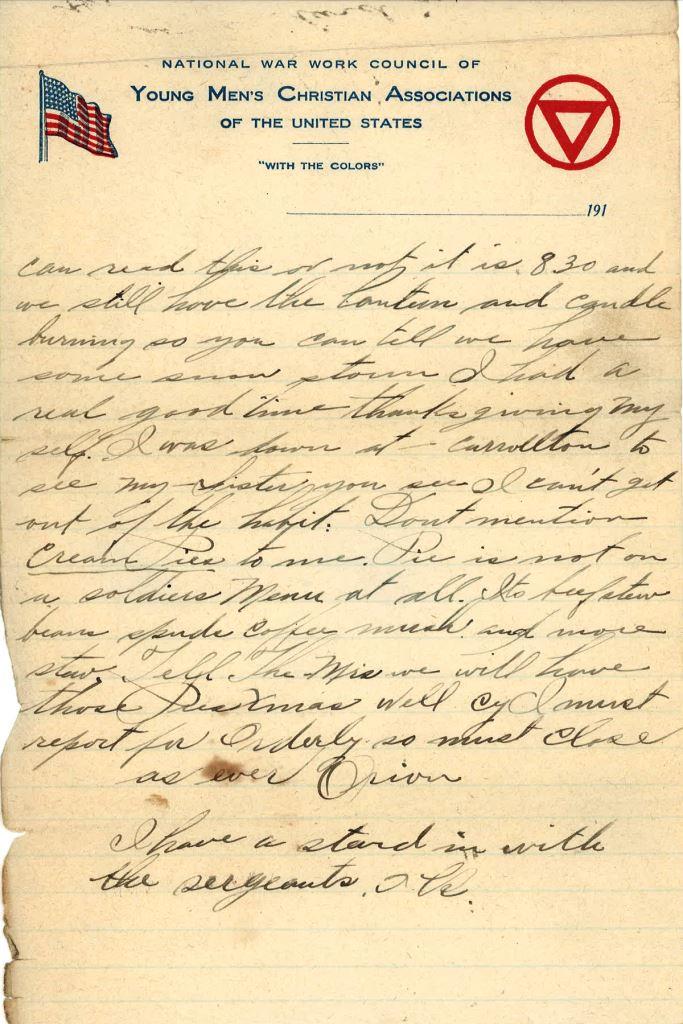 NATIONAL WAR WORK COUNCIL OF
YOUNG MEN'S CHRISTIAN ASSOCIATIONS
OF THE UNITED STATES
"WITH THE COLORS"
191
can read this or not, it is 8.30 and
we still have the lantern and candle
burning so you can tell we have
some snow storm I had a
real good time thanksgiving my
self. I was down at - Carrollton to
see my sister, you see I can't get
out of the habit. Dont mention
Cream Pies to me. Pie is not on
a soldiers Menu at all. Its beefstew
beans spuds coffee mush and more
stew. Tell The Mrs we will have
those Pies Xmas Well Cy I must
report for Orderly so must close
as ever Orion
I have a stand in with
the sergeants.